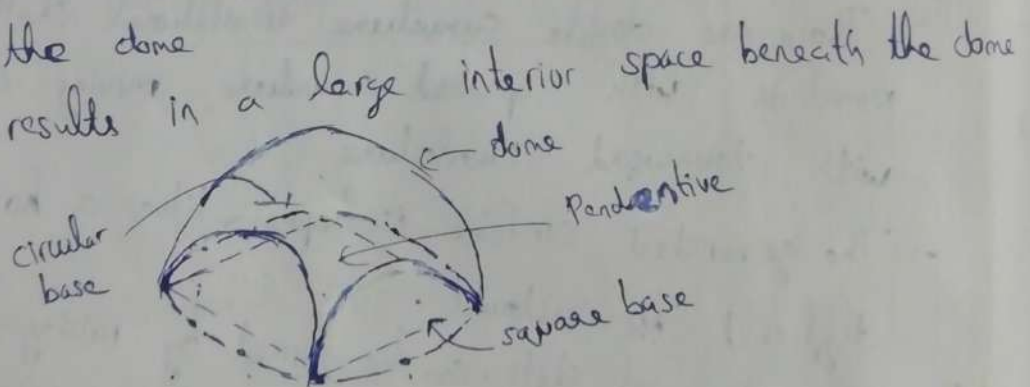 the dome
results in a large interior space beneath the dome
dome
Pendentive
circular
base
square base